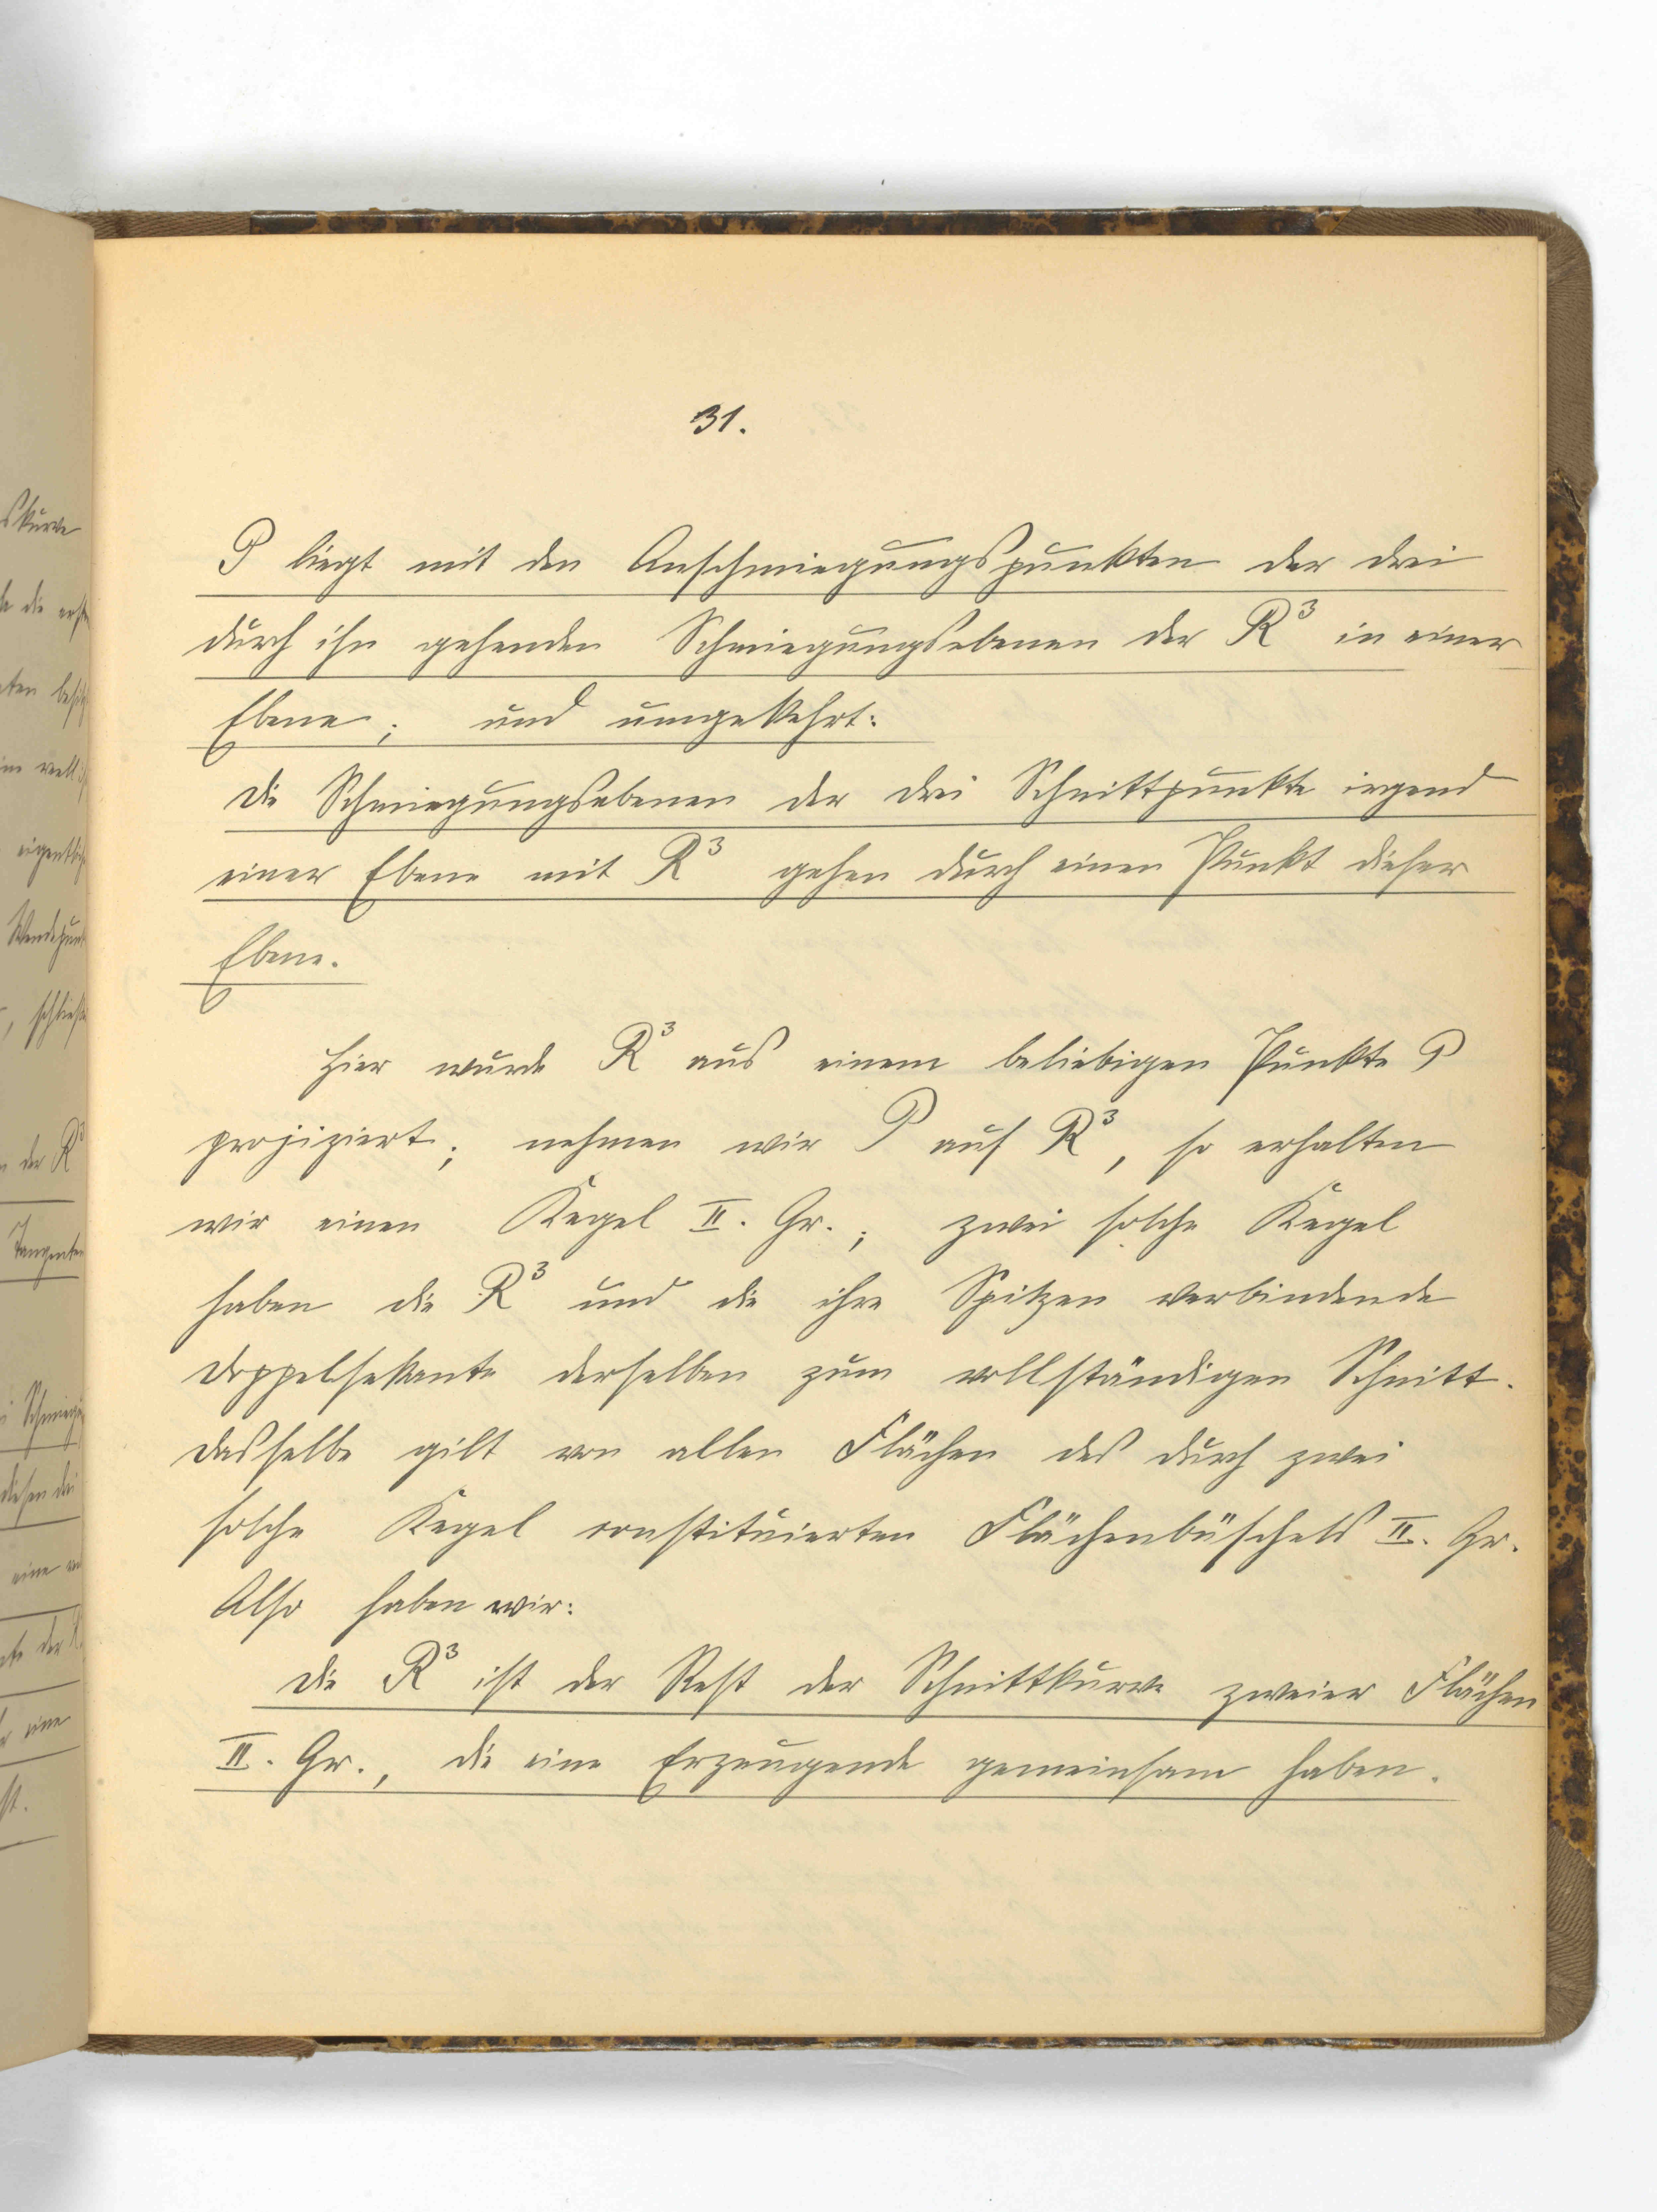 31.
P liegt mit den Anschmiegungspunkten der drei
durch ihn gehenden Schmiegungsebenen der R³ in einer
Ebene; und umgekehrt:
Die Schmiegungsebenen der drei Schnittpunkte irgend
einer Ebene mit R³ gehen durch einen Punkt dieser
Ebene.
Hier wurde R³ aus einem beliebigen Punkte P
projiziert; nehmen wir P auf R³, so erhalten
wir einen Kegel II. Gr.; zwei solche Kegel
haben die R³ und die ihre Spitzen verbindende
Doppelsekante derselben zum vollständigen Schnitt.
Dasselbe gilt von allen Flächen des durch zwei
solche Kegel constituierten Flächenbüschels II. Gr.
Also haben wir:
Die R³ ist der Rest der Schnittkurve zweier Flächen
II. Gr., die eine Erzeugende gemeinsam haben.